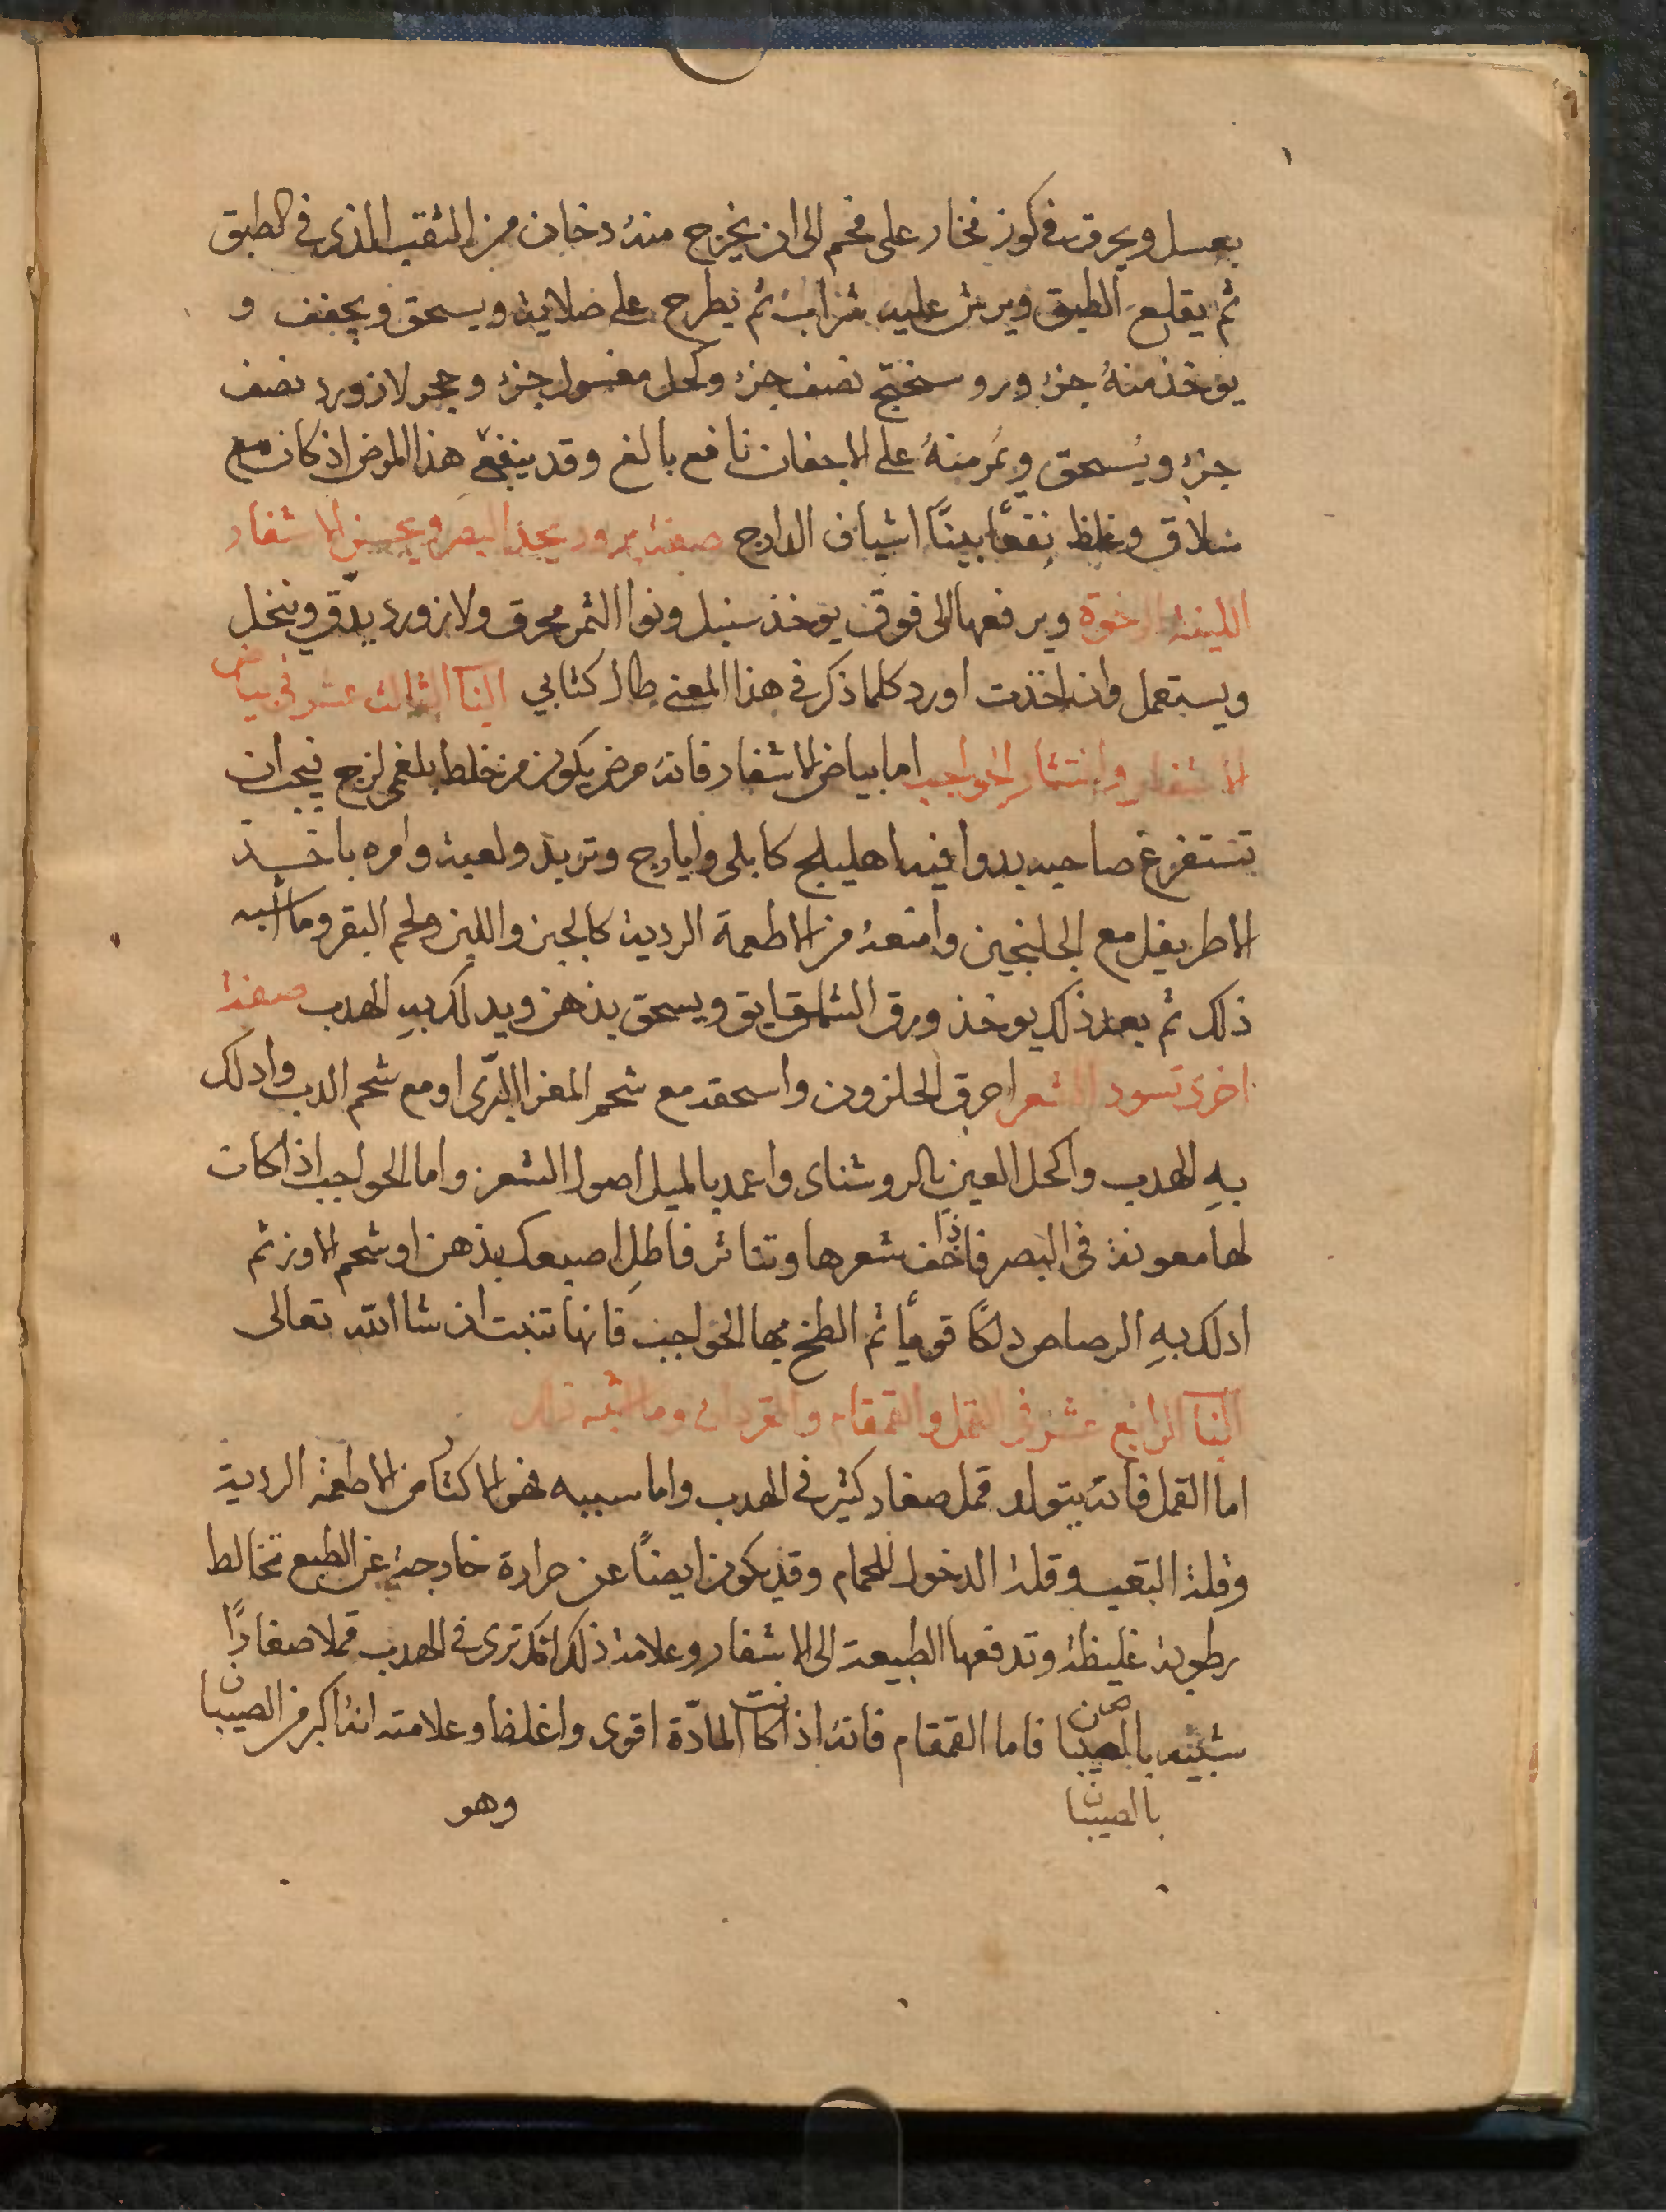 بعسل ويحرق في كوز فخار على فحم الى ان يخرج منهُ دخان من الثقب الذى فى الطبق
ثم يقلع الطبق ويرش عليه شراب ثم يطرح على صلاية ويسحق ويجفف و
يوخذ منهُ جزء وروسختج نصف جزء وكحل مغسول جزء وحجر لازورد نصف
جزء ويُسحق ويُمر منهُ على الاجفان نافع بالغ وقد ينفع هذا المرض اذ كان مع
سلاق وغلظ نفعًا بينًا اشياف الدارج صفة برود يحد البصر ويحسن الاشفار
اللينة الرخوة ويرفعها الى فوق يوخذ سنبل ونوا الثمر محرق ولازورد يدّق وينخل
ويستعمل وان اخذت اورد كلما ذكر فى هذا المعنى طال كتابي البا الثالث عشر في بياض
الاشفار وانتثار الحواجب اما بياض الاشفار فانهُ مرض يكون من خلط بلغمى لزج فيجب ان
تستفرغ صاحبه بدوا فيه اهليلج كابلى وايارج وتربد ولعبة وامره باخذ
الاطريفل مع الجلنجين وامنعهُ من الاطعمة الردية كالجبن واللبن ولحم البقر وما اشبه
ذلك ثم بعد ذلك يوخذ ورق الشقايق ويسحق بدهن ويدلك بهِ الهدب صفة
اخرى تسود الشعر احرق الحلزون واسحقه مع شحم المعز البرّى او مع شحم الدب وادلك
بهِ الهدب واكحل العين بالروشناى واعمد بالميل اصول الشعر واما الحواجب اذا كان
لها معونة فى البصر فاذا خف شعرها وتناثر فاطلِ اصبعك بدهن او شحم الاوز ثم
ادلك بهِ الرصاص دلكًا قويًا ثم الطخ بها الحواجب فانها تنبت ان شا الله تعالى
البا الرابع عشر في القمل والقمقام والقردان وما اشبه ذلك
اما القمل فانهُ يتولد قمل صغار كثير فى الهدب واما سببه فهو الاكثار من الاطعمة الردية
وقلة التعب وقلة الدخول للحمام وقد يكون ايضًا عن حرارة خارجة عن الطبع تخالط
رطوبة غليظة وتدفعها الطبيعة الى الاشفار وعلامة ذلك انك ترى فى الهدب قملا صغارًا
شبيه بالصيبان فاما القمقام فانهُ اذا كانت المادّة اقوى واغلظ وعلامته انهُ اكبر من الصيبان
بالصيبان
وهو